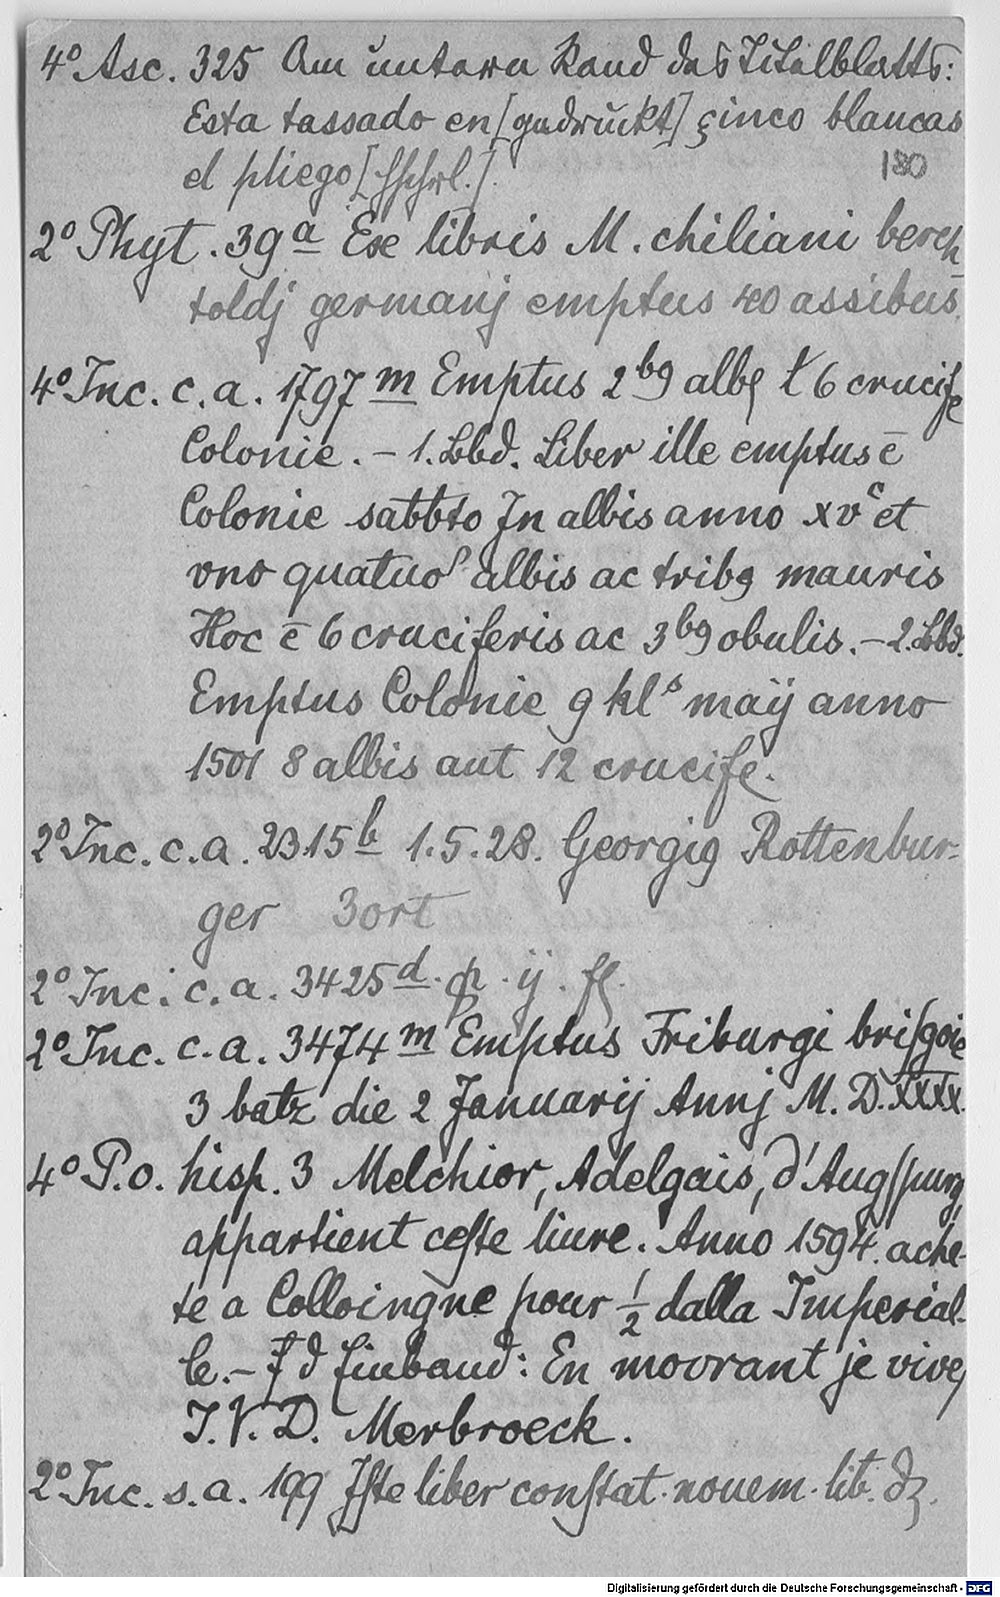 4° Asc. 325 Am untern Rand des Titelblatts:
Esta tassado en [gedruckt] çinco blancas
el pliego [hschrl.].
180
2° Phyt. 39a Exe libris M. chiliani berch-
toldj germanj emptus 40 assibus.
4° Inc. c. a. 1797 m Emptus 2 b9 alb 6 crucife
Colonie. – 1. Bbd. Liber ille emptus ē
Colonie sabbto In albis anno xvc et
vno quatuor albis ac trib9 mauris
Hoc ē 6 cruciferis ac 3 b9 obulis. – 2. Bbd.
Emptus Colonie 9 kls maij anno
1501 8 albis aut 12 crucife.
2° Inc. c. a. 2315 b 1.5.28. Georgi9 Rottenbur-
ger 3 ort
2° Inc. c. a. 3425 d . ij . fl.
2° Inc. c. a. 3474 m Emptus Friburgi briſgoie
3 batz die 2 Januarij Annj M. D. XXIX.
4° P.o. hisp. 3 Melchior, Adelgais, d'Augſpurg,
appartient ceſte liure. Anno 1594. ache-
te a Colloingne pour 1/2 dalla Imperial-
le. – f d Einband: En movrant je vive,
J. V. D. Merbroeck.
2° Inc. s. a. 199 Iſte liber conſtat. nouem. lib. dz.
Digitalisierung gefördert durch die Deutsche Forschungsgemeinschaft - DFG